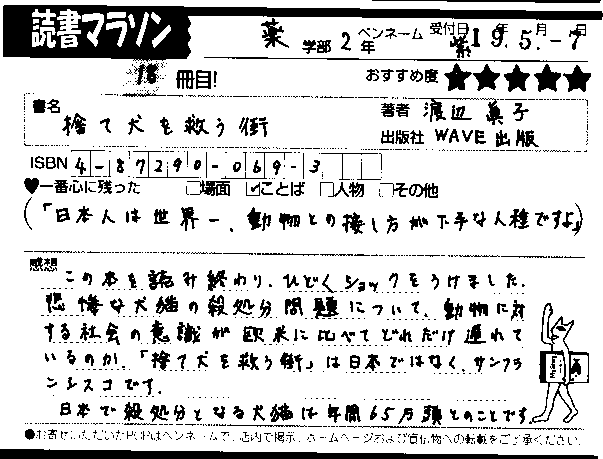 読書マラソン
薬 学部 2 年 ペンネーム 紫 受付日 19年5月-7日
18 冊目! おすすめ度 ★★★★★
書名 捨て犬を救う街
著者 渡辺 眞子
出版社 WAVE出版
ISBN 4-87290-069-3
♥一番心に残った □場面 ☑ことば □人物 □その他
(「日本人は世界一、動物との接し方が下手な人種ですよ」)
感想
この本を読み終わり、ひどくショックをうけました。
悲惨な犬猫の殺処分問題について、動物に対
する社会の意識が欧米に比べてどれだけ遅れて
いるのか。「捨て犬を救う街」は日本ではなく、サンフラ
ンシスコです。
日本で殺処分となる犬猫は年間65万頭とのことです。
●お寄せいただいたPOPはペンネームで、店内で掲示、ホームページおよび宣伝物への転載をご了承ください。